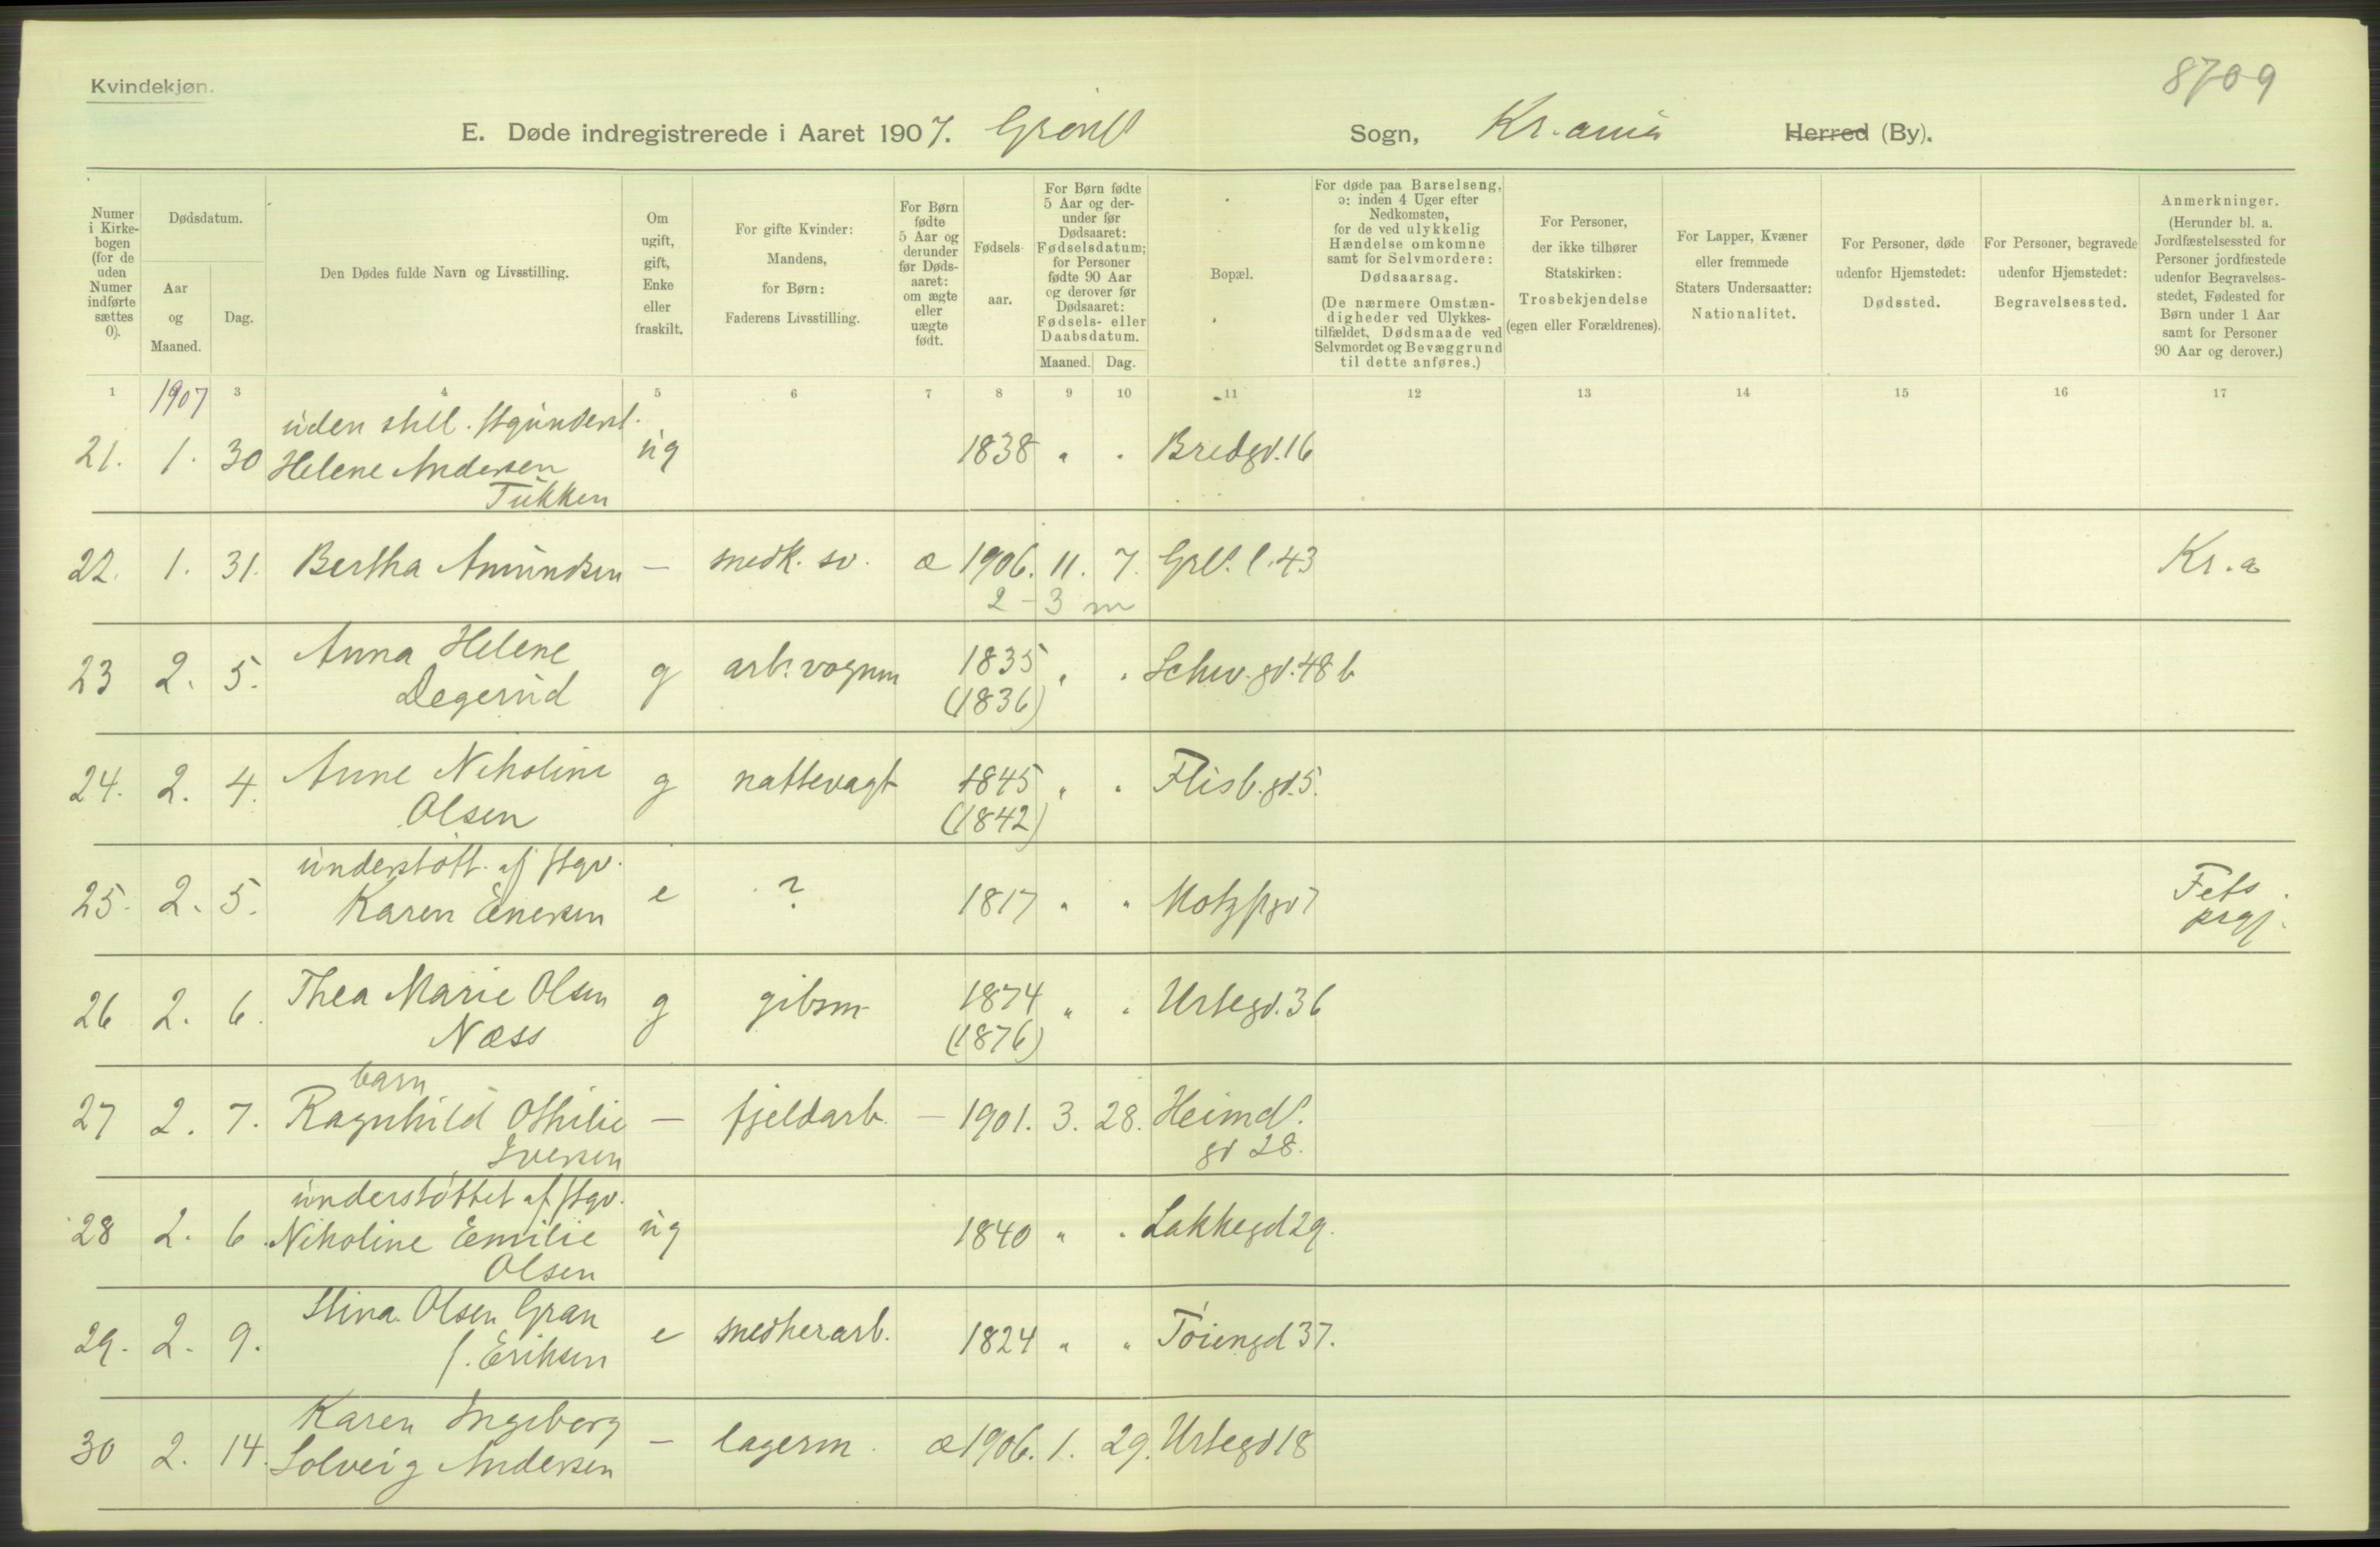 Kvindekjøn.
8709
E. Døde indregistrerede i Aaret 1907. Grønl. Sogn, Kr.ania Herred (By).
Numer i Kirke-bogen (for de uden Numer indførte sættes 0).
Dødsdatum.
Aar og Maaned.
Dag.
Den Dødes fulde Navn og Livsstilling.
Om ugift, gift, Enke eller fraskilt.
For gifte Kvinder: Mandens, for Børn: Faderens Livsstilling.
For Børn fødte 5 Aar og derunder før Døds-aaret: om ægte eller uægte født.
Fødsels-aar.
For Børn fødte 5 Aar og der-under før Dødsaaret: Fødselsdatum; for Personer fødte 90 Aar og derover før Dødsaaret: Fødsels- eller Daabsdatum.
Maaned. Dag.
Bopæl.
For døde paa Barselseng, ɔ: inden 4 Uger efter Nedkomsten, for de ved ulykkelig Hændelse omkomne samt for Selvmordere: Dødsaarsag.
(De nærmere Omstæn-digheder ved Ulykkes-tilfældet, Dødsmaade ved Selvmordet og Bevæggrund til dette anføres.)
For Personer, der ikke tilhører Statskirken: Trosbekjendelse (egen eller Forældrenes).
For Lapper, Kvæner eller fremmede Staters Undersaatter: Nationalitet.
For Personer, døde udenfor Hjemstedet: Dødssted.
For Personer, begravede udenfor Hjemstedet: Begravelsessted.
Anmerkninger. (Herunder bl. a. Jordfæstelsessted for Personer jordfæstede udenfor Begravelses-stedet, Fødested for Børn under 1 Aar samt for Personer 90 Aar og derover.)
1 3 4 5 6 7 8 9 10 11 12 13 14 15 16 17
1907
uden still.
21. 1. 30 Helene Andersen ug 1838 " " Bredgd. 16
Tukken
22. 1. 31. Bertha Amundsen — snedk. sv. æ 1906. 11. 7. Grl. l. 43 Kr.a
2-3 m
23 2. 5. Anna Helene g arb. vognm 1835 " " Schw. gd. 48 b
Degerud (1836)
24. 2. 4. Anne Nikoline g nattevagt 1845 " " Flisb. gd. 5.
Olsen (1842)
understøtt. af ftgv.
25. 2. 5. Karen Enersen e ? 1817 " " Motzfgd 7 Fets prgj.
26 2. 6. Thea Marie Olsen g gibsm 1874 " " Urtegd. 36
Næss (1876)
barn
27 2. 7. Ragnhild Othilie — fjeldarb. — 1901. 3. 28. Heimdl.
Iversen gd 28.
understøttet af ftgv.
28 2. 6. Nikoline Emilie ug 1840 " " Lakkegd 29.
Olsen
29. 2. 9. Stina Olsen Gran e snedkerarb. 1824 " " Tøiengd 37.
f. Eriksen
Karen Ingeborg
30 2. 14. Solveig Andersen — lagerm. æ 1906. 1. 29. Urtegd 18